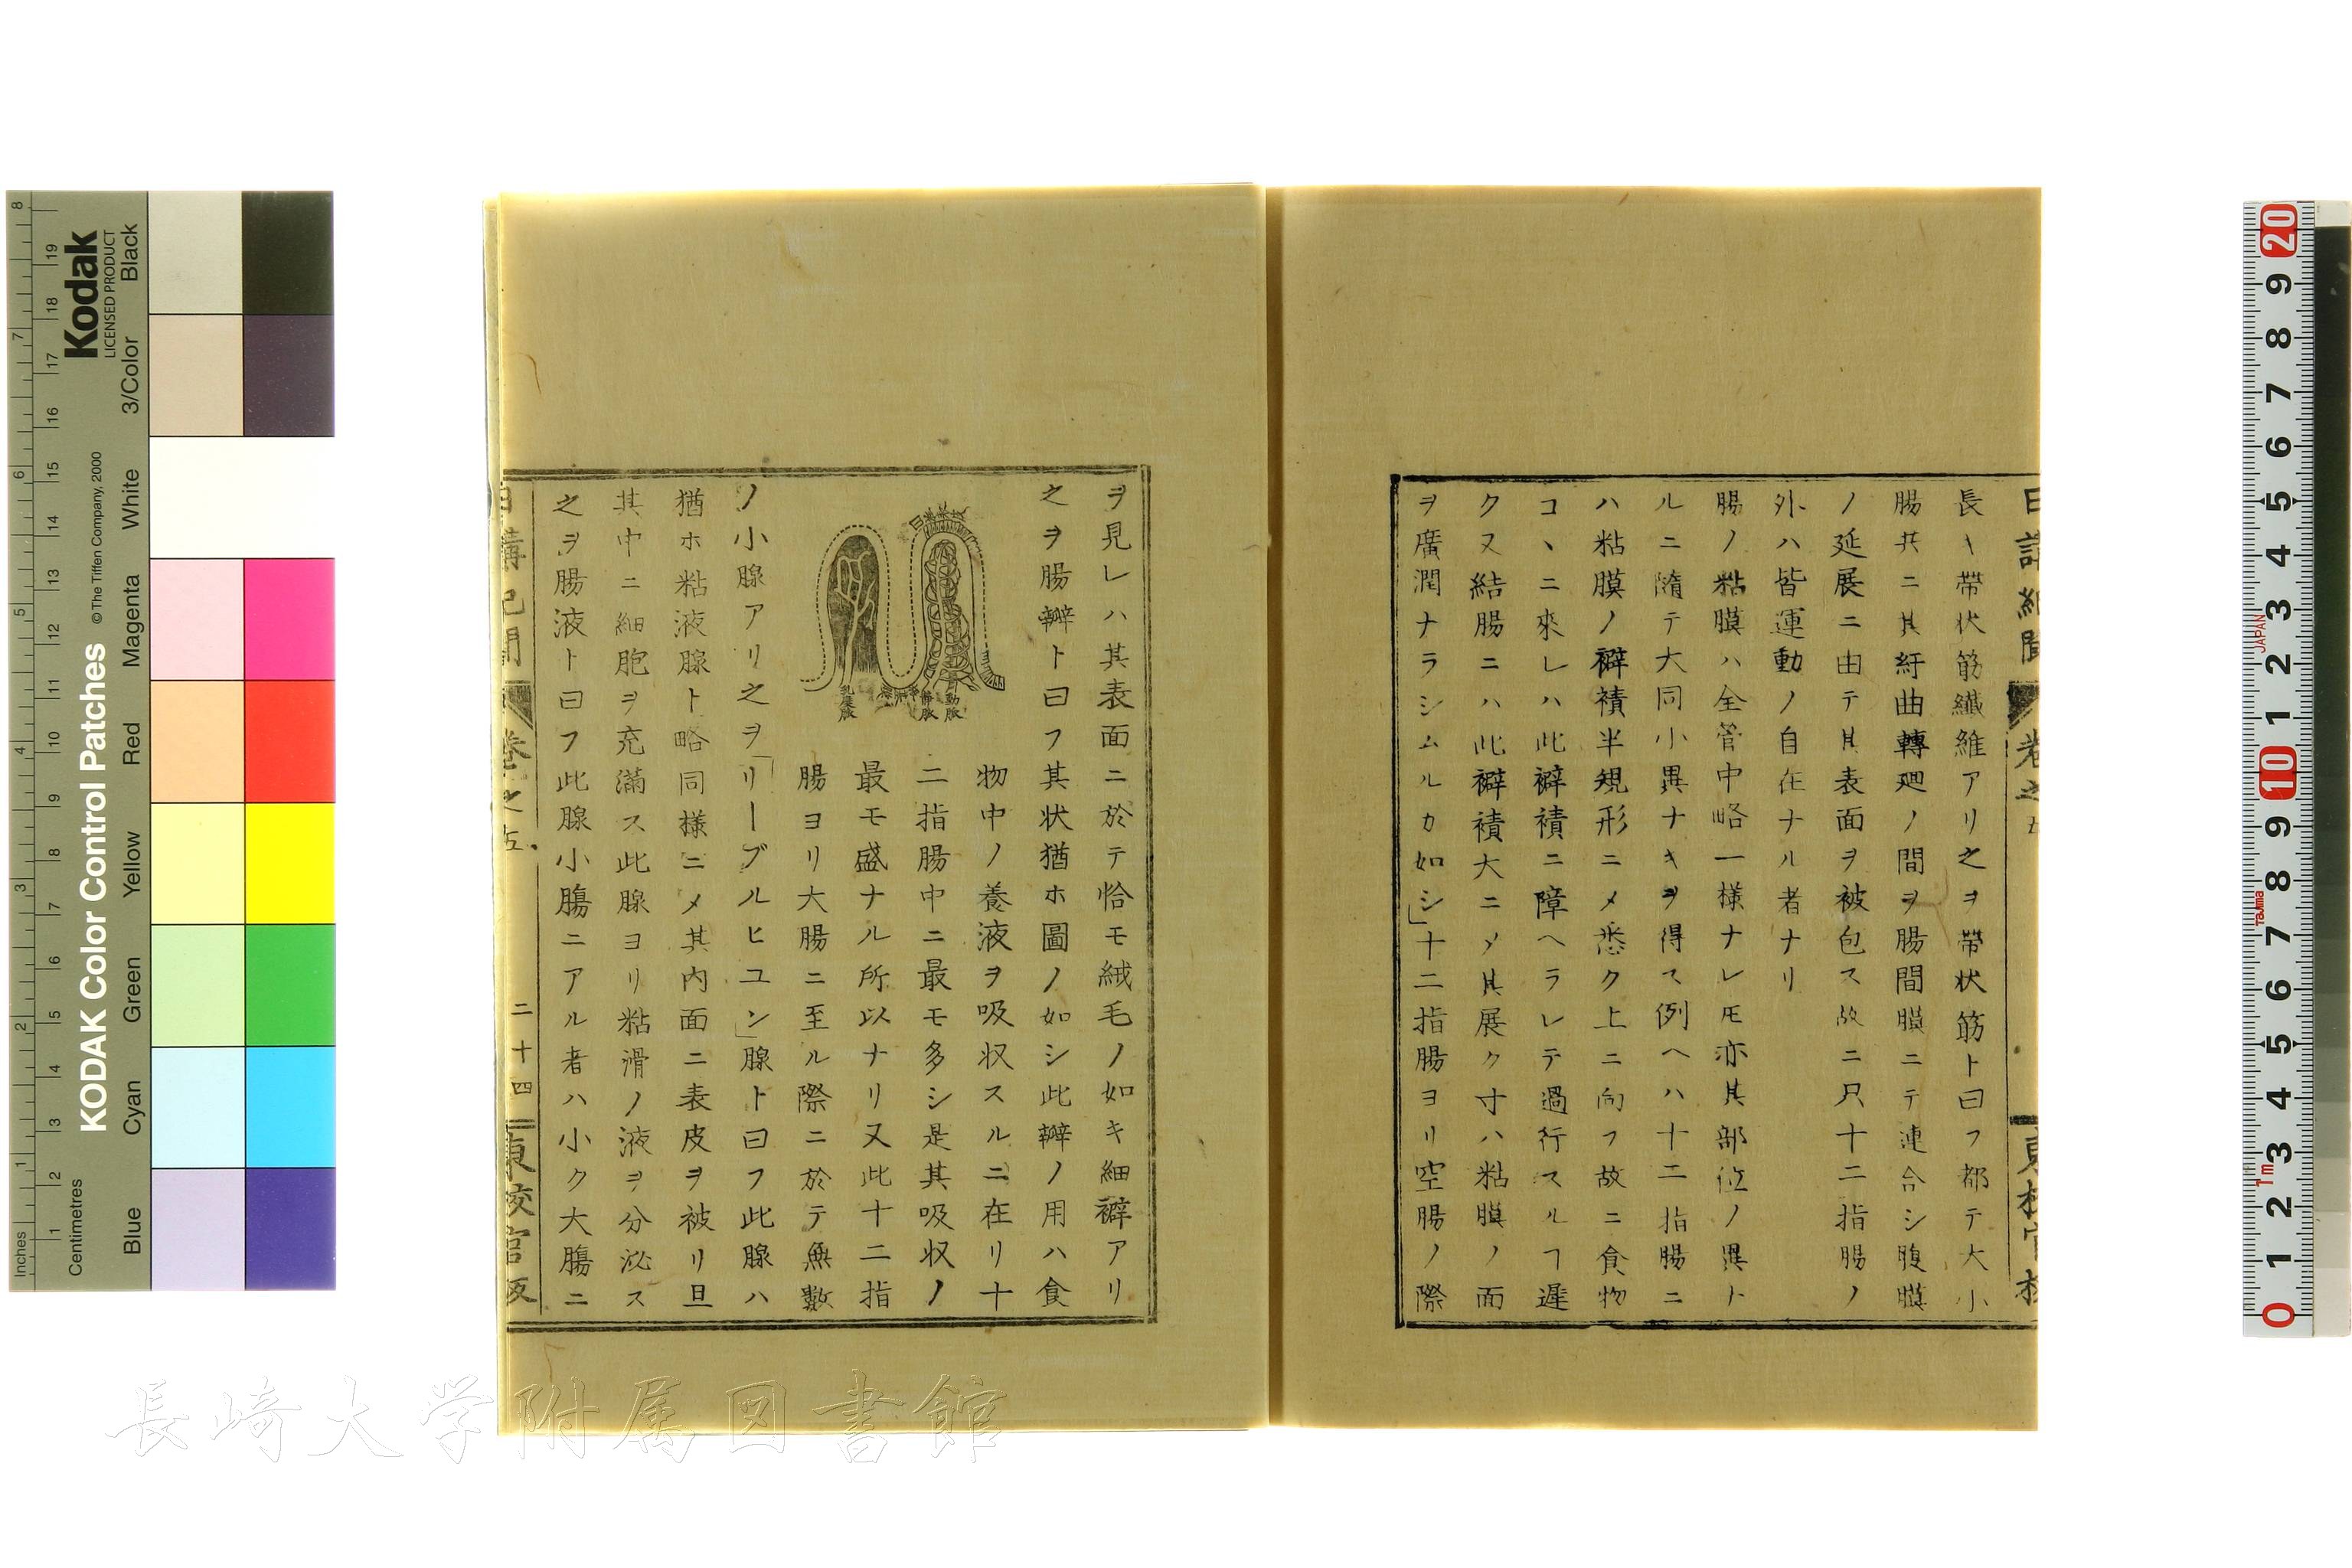 日講紀聞
卷之五
東校官板
長キ帶状筋纖維アリ之ヲ帶状筋ト曰フ都テ大小
腸共ニ其紆曲轉廻ノ間ヲ腸間膜ニテ連合シ腹膜
ノ延展ニ由テ其表面ヲ被包ス故ニ只十二指腸ノ
外ハ皆運動ノ自在ナル者ナリ
腸ノ粘膜ハ全管中略一様ナレ𪜈亦其部位ノ異ト
ルニ隨テ大同小異ナキヲ得ス例ヘハ十二指腸ニ
ハ粘膜ノ襞積半規形ニメ悉ク上ニ向フ故ニ食物
コヽニ來レハ此襞積ニ障ヘラレテ過行スルヿ遲
ク又結腸ニハ此襞積大ニメ其展ク寸ハ粘膜ノ面
ヲ廣潤ナラシムルカ如シ」十二指腸ヨリ空腸ノ際
ヲ見レハ其表面ニ於テ恰モ絨毛ノ如キ細襞アリ
之ヲ腸瓣ト曰フ其状猶ホ圖ノ如シ此瓣ノ用ハ食
物中ノ養液ヲ吸収スルニ在リ十
二指腸中ニ最モ多シ是其吸収ノ
最モ盛ナル所以ナリ又此十二指
腸ヨリ大腸ニ至ル際ニ於テ無數
動脈
静脈
乳糜脈
ノ小腺アリ之ヲ「リーブルヒユン」腺ト曰フ此腺ハ
猶ホ粘液腺ト略同様ニメ其内面ニ表皮ヲ被リ且
其中ニ細胞ヲ充滿ス此腺ヨリ粘滑ノ液ヲ分泌ス
之ヲ腸液ト曰フ此腺小腸ニアル者ハ小ク大腸ニ
日講紀聞
卷之五
二十四
東校官板
KODAK Color Control Patches
© The Tiffen Company, 2000
Kodak
LICENSED PRODUCT
Inches
Centimetres
Blue
Cyan
Green
Yellow
Red
Magenta
White
3/Color
Black
JAPAN
Tajima
1m
長崎大学附属図書館